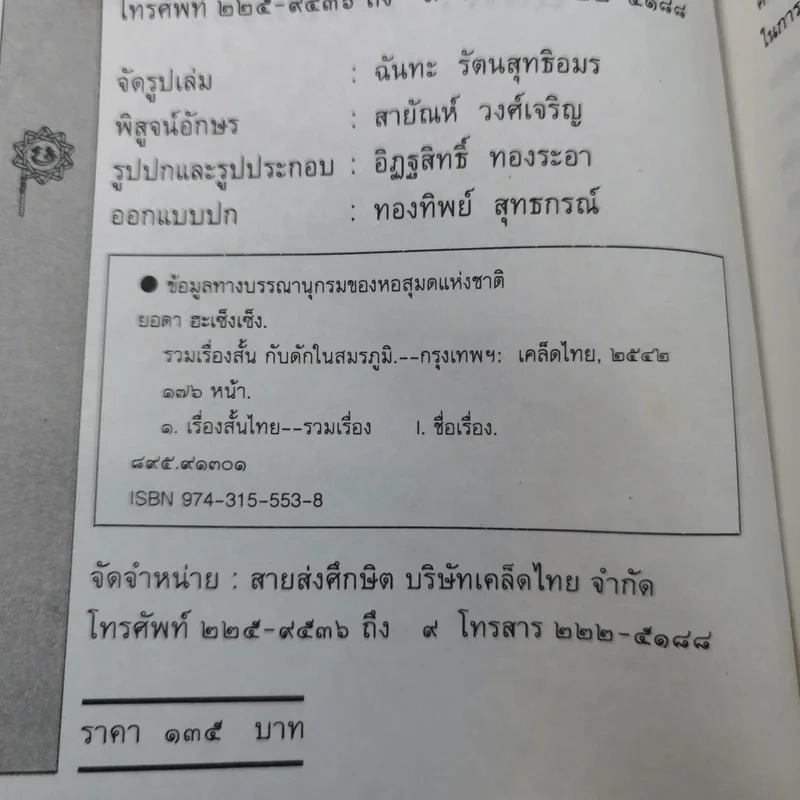 โทรศัพท์ ๒๒๕-๙๕๓๖ ถึง ๙ ๒๒๒-๕๑๘๘
จัดรูปเล่ม : ฉันทะ รัตนสุทธิอมร
พิสูจน์อักษร : สายัณห์ วงศ์เจริญ
รูปปกและรูปประกอบ : อิฏฐสิทธิ์ ทองระอา
ออกแบบปก : ทองทิพย์ สุทธกรณ์
● ข้อมูลทางบรรณานุกรมของหอสมุดแห่งชาติ
ยอดา ฮะเซ็งเซ็ง.
รวมเรื่องสั้น กับดักในสมรภูมิ.--กรุงเทพฯ: เคล็ดไทย, ๒๕๔๒
๑๗๖ หน้า.
๑. เรื่องสั้นไทย--รวมเรื่อง I. ชื่อเรื่อง.
๘๙๕.๙๑๓๐๑
ISBN 974-315-553-8
จัดจำหน่าย : สายส่งศึกษิต บริษัทเคล็ดไทย จำกัด
โทรศัพท์ ๒๒๕-๙๕๓๖ ถึง ๙ โทรสาร ๒๒๒-๕๑๘๘
ราคา ๑๓๕ บาท
ในการ